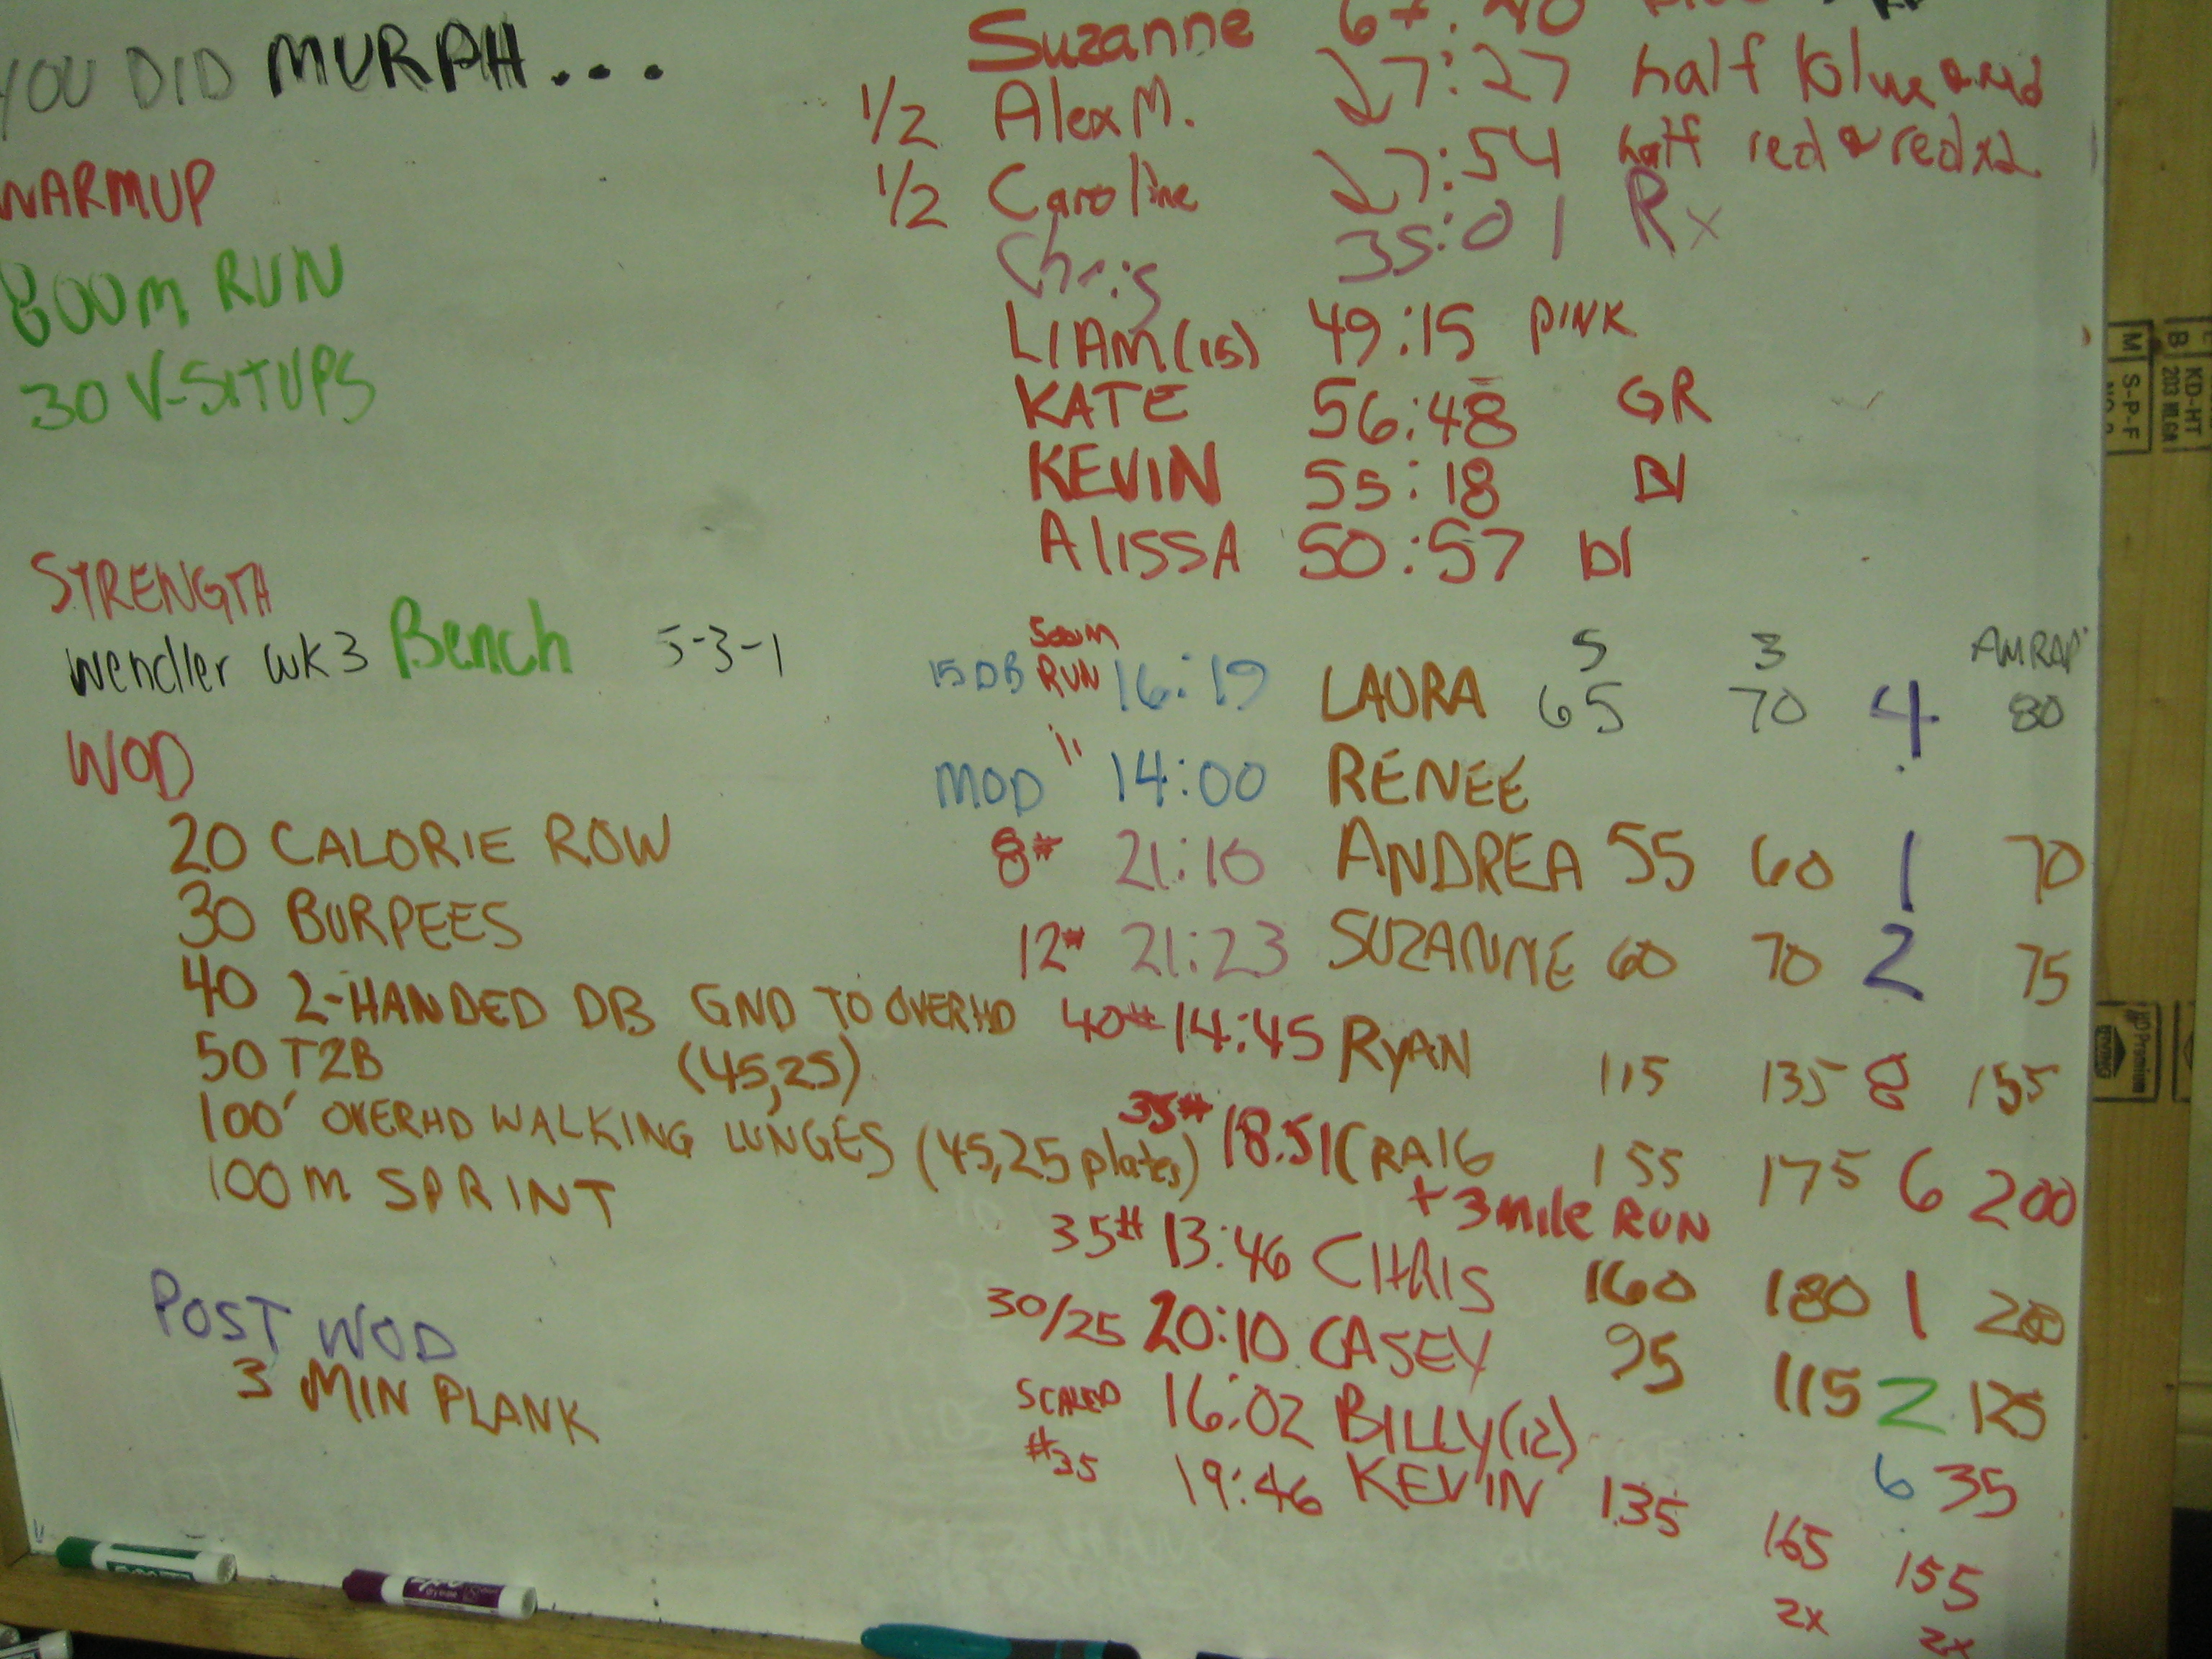 YOU DID MURPH...
WARMUP
800m RUN
30 V-SITUPS
STRENGTH
wendler wk3 Bench 5-3-1
WOD
20 CALORIE ROW
30 BURPEES
40 2-HANDED DB GND TO OVERHD
50 T2B (45,25)
100' OVERHD WALKING LUNGES (45,25 plates)
100m SPRINT
POST WOD
3 MIN PLANK
Suzanne
1/2 Alex M. 27:27 half blue & red
1/2 Caroline 27:54 half red & red x2
Chris 35:01 Rx
LIAM (15) 49:15 PINK
KATE 56:48 GR
KEVIN 55:18 Bl
Alissa 50:57 Bl
5 3 AMRAP
15 DB 500M RUN 16:19 LAURA 65 70 4 80
MOD " 14:00 RENEE
8# 21:10 ANDREA 55 60 1 70
12# 21:23 SUZANNE 60 70 2 75
40# 14:45 RYAN 115 135 8 155
35# 18:51 CRAIG 155 175 6 200
+ 3 mile RUN
35# 13:46 CHRIS 160 180 1 200
30/25 20:10 CASEY 95 115 2 125
SCALED 16:02 BILLY (12) 6 35
#35 19:46 KEVIN 135 165 155
2x 2x
KD-HT
S-P-F
M
B
HD Premium